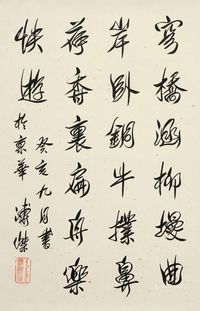 穹橋涵柳幔曲
岸臥銅牛撲鼻
荷香裏扁舟樂
快遊
癸亥九月書
於京華 溥傑